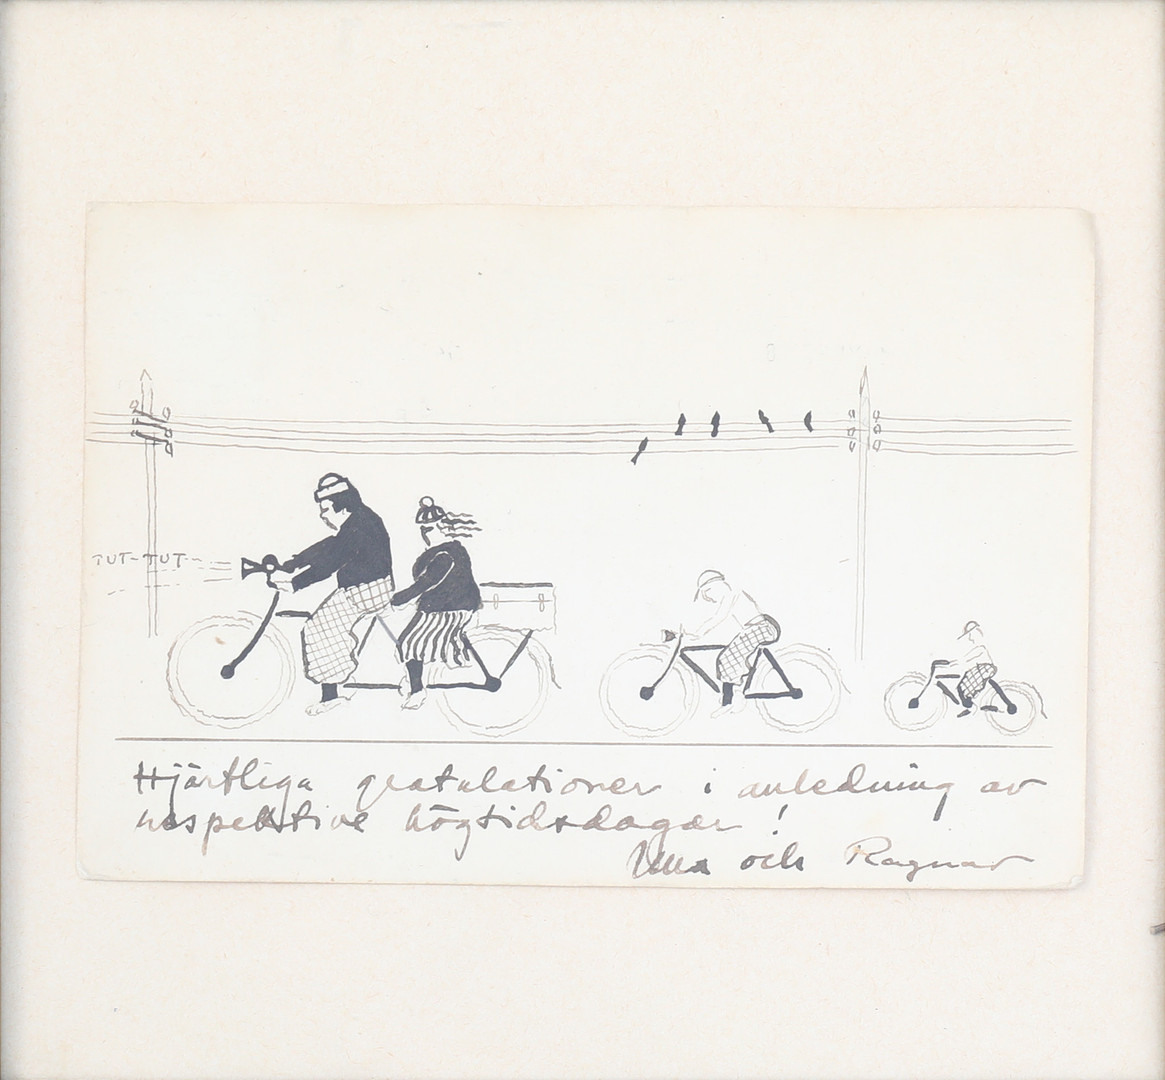 TUT-TUT-
Hjärtliga gratulationer i anledning av
respektive högtidsdagar !
och Ragnar